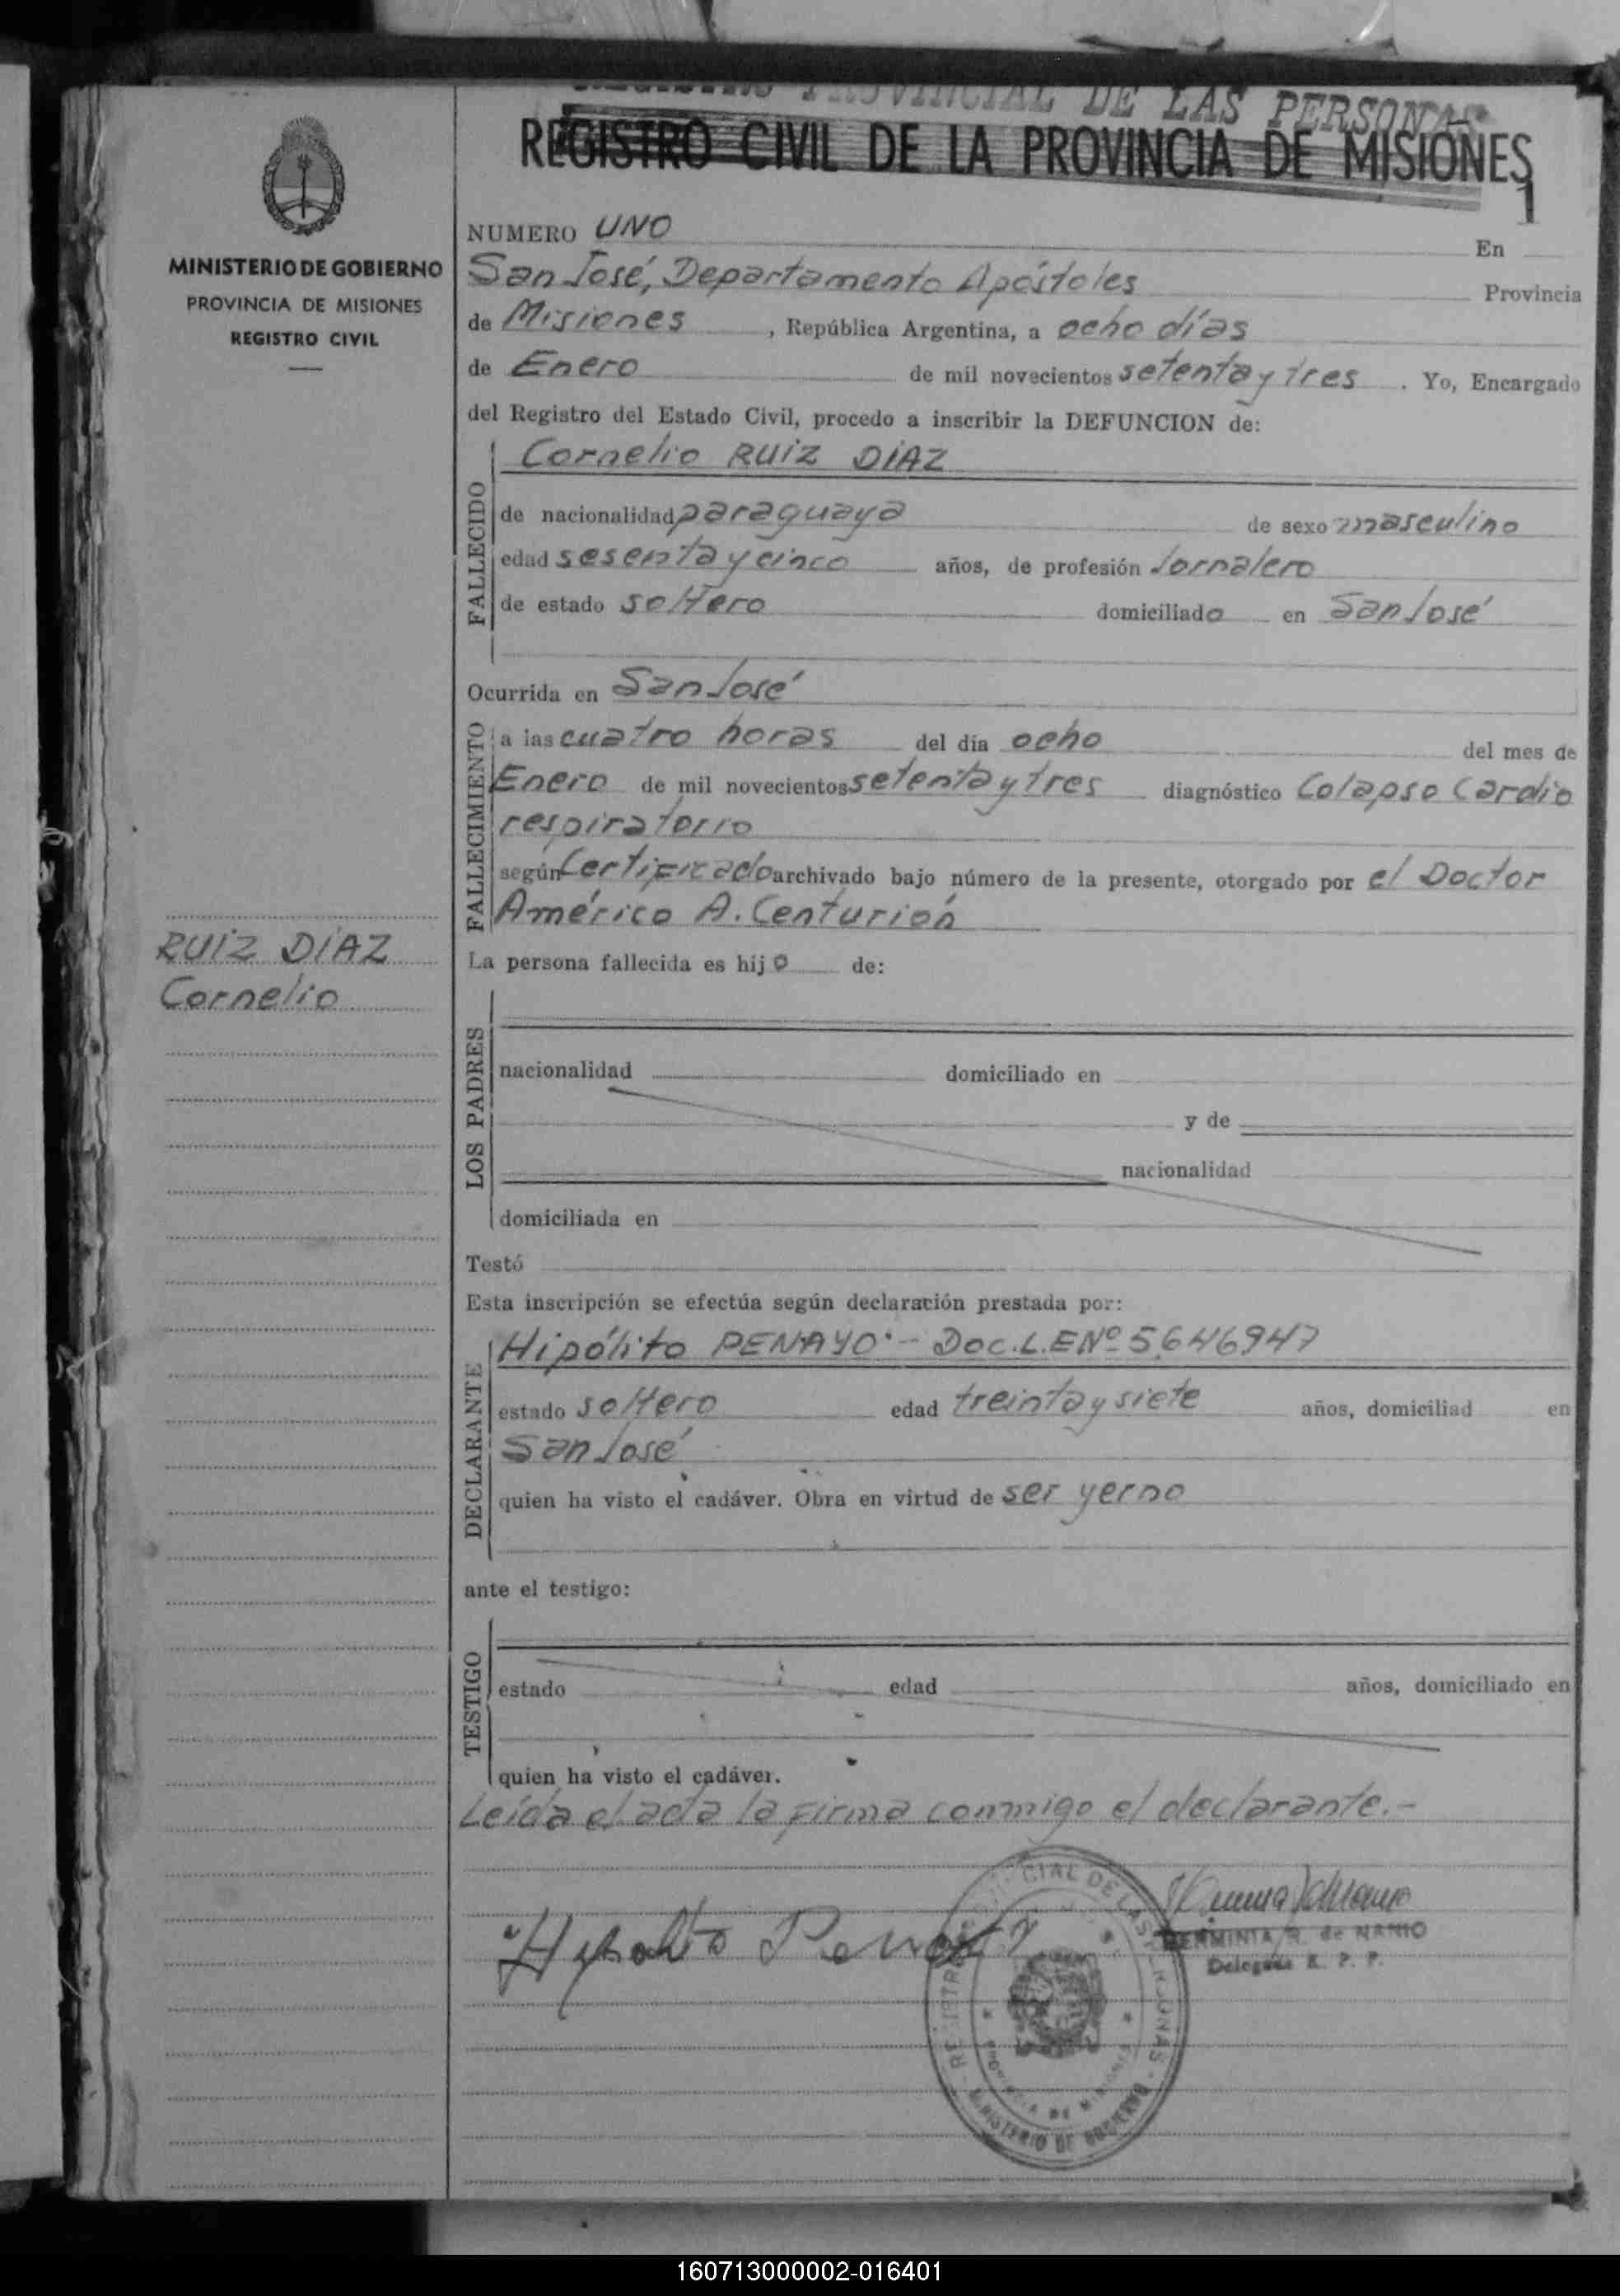 REGISTRO PROVINCIAL DE LAS PERSONAS
REGISTRO CIVIL DE LA PROVINCIA DE MISIONES
1
MINISTERIO DE GOBIERNO
PROVINCIA DE MISIONES
REGISTRO CIVIL
RUIZ DIAZ
Cornelio
NUMERO UNO En
San José, Departamento Apóstoles Provincia
de Misiones, República Argentina, a ocho días
de Enero de mil novecientos setenta y tres. Yo, Encargado
del Registro del Estado Civil, procedo a inscribir la DEFUNCION de:
FALLECIDO
Cornelio RUIZ DIAZ
de nacionalidad paraguaya de sexo masculino
edad sesenta y cinco años, de profesión Jornalero
de estado soltero domiciliado en San José
Ocurrida en San José
FALLECIMIENTO
a las cuatro horas del día ocho del mes de
Enero de mil novecientos setenta y tres diagnóstico Colapso Cardio
respiratorio
según Certificado archivado bajo número de la presente, otorgado por el Doctor
Américo A. Centurión
La persona fallecida es hijo de:
LOS PADRES
nacionalidad domiciliado en
y de
nacionalidad
domiciliada en
Testó
Esta inscripción se efectúa según declaración prestada por:
DECLARANTE
Hipólito PENAYO.- Doc.L.E Nº 5646947
estado soltero edad treinta y siete años, domiciliad en
San José
quien ha visto el cadáver. Obra en virtud de ser yerno
ante el testigo:
TESTIGO
estado edad años, domiciliado en
quien ha visto el cadáver.
Leída el acta la firma conmigo el declarante.-
HERMINIA R. de NARIO
Delegada R. P. P.
REGISTRO PROVINCIAL DE LAS PERSONAS
PROVINCIA DE MISIONES
MINISTERIO DE GOBIERNO
160713000002-016401